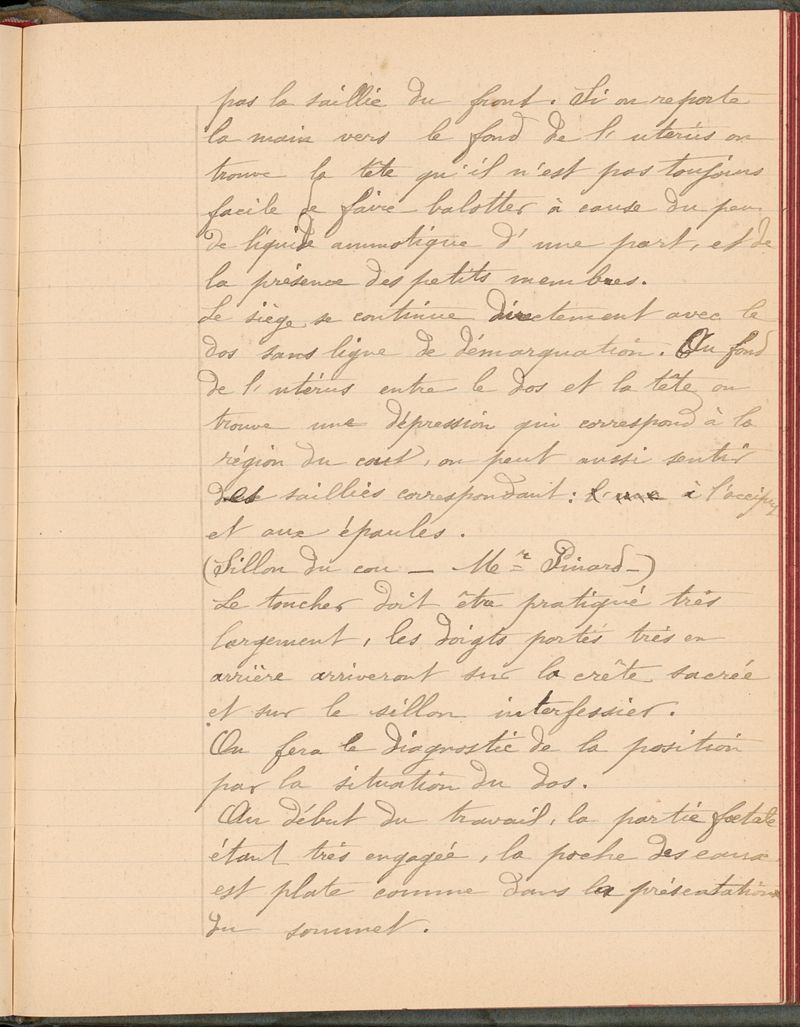 pas la saillie du front. Si on reporte
la main vers le fond de l'utérus on
trouve la tête qu'il n'est pas toujours
facile de faire balotter à cause du peu
de liquide ammotique d'une part, et de
la présence des petits membres.
Le siège se continue directement avec le
dos sans ligne de démarquation. Au fond
de l'utérus entre le dos et la tête on
trouve une dépression qui correspond à la
région du cout, on peut aussi sentir
des saillies correspondant : à l'occiput
et aux épaules.
(Sillon du cou — Mr Pinard —)
Le toucher doit être pratiqué très
largement, les doigts portés très en
arrière arriveront sur la crête sacrée
et sur le sillon interfessier.
On fera le diagnostic de la position
par la situation du dos.
Au début du travail, la partie fœtale
étant très engagée, la poche des eaux
est plate comme dans la présentation
du sommet.